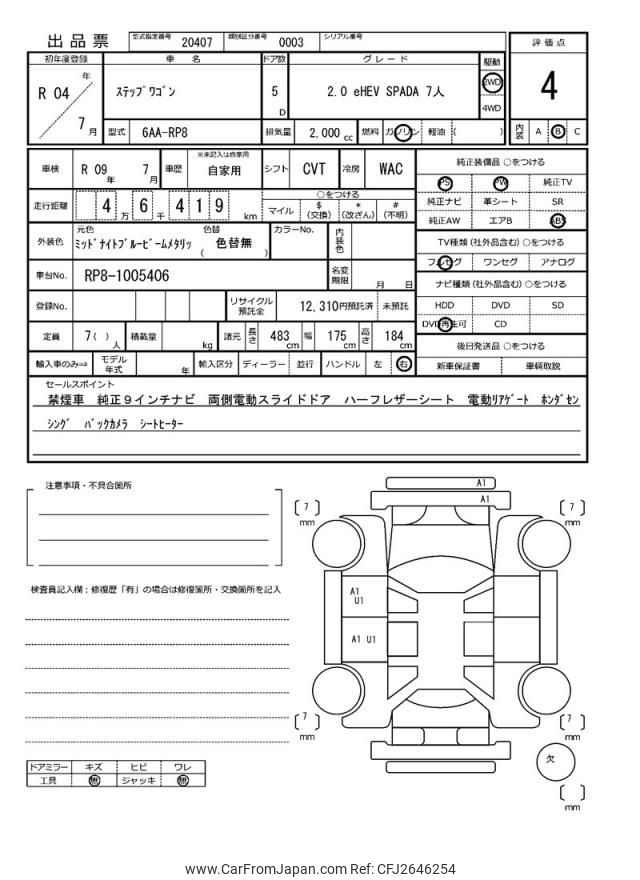 出品票 型式指定番号 20407 類別区分番号 0003 シリアル番号
初年度登録 車名 ドア数 グレード 駆動 評価点
R 04 年 7 月 ステップワゴン 5 D 2.0 eHEV SPADA 7人 2WD 4WD 4
型式 6AA-RP8 排気量 2,000 cc 燃料 ガソリン 軽油 ( ) 内装 A B C
車検 R 09 年 7 月 車歴 ※未記入は自家用 自家用 シフト CVT 冷房 WAC
走行距離 4 万 6 千 4 1 9 km ○をつける マイル $ (交換) * (改ざん) # (不明)
外装色 元色 ミッドナイトブルービームメタリッ 色替 ( 色替無 ) カラーNo. 内装色
車台No. RP8-1005406 名変期限 月 日
登録No. リサイクル預託金 12,310円預託済 未預託
定員 7 ( ) 人 積載量 kg 諸元 長さ 483 cm 幅 175 cm 高さ 184 cm
輸入車のみ⇒ モデル年式 年 輸入区分 ディーラー 並行 ハンドル 左 右
純正装備品 ○をつける
PS PW 純正TV
純正ナビ 革シート SR
純正AW エアB ABS
TV種類 (社外品含む) ○をつける
フルセグ ワンセグ アナログ
ナビ種類 (社外品含む) ○をつける
HDD DVD SD
DVD再生可 CD
後日発送品 ○をつける
新車保証書 車輌取説
セールスポイント
禁煙車 純正9インチナビ 両側電動スライドドア ハーフレザーシート 電動リアゲート ホンダセン
シング バックカメラ シートヒーター
注意事項・不具合箇所
検査員記入欄：修復歴「有」の場合は修復箇所・交換箇所を記入
ドアミラー キズ ヒビ ワレ
工具 無 ジャッキ 無
A1
A1
[ 7 ] mm
[ 7 ] mm
A1
U1
A1 U1
[ 7 ] mm
[ 7 ] mm
欠
[ ] mm
www.CarFromJapan.com Ref: CFJ2646254